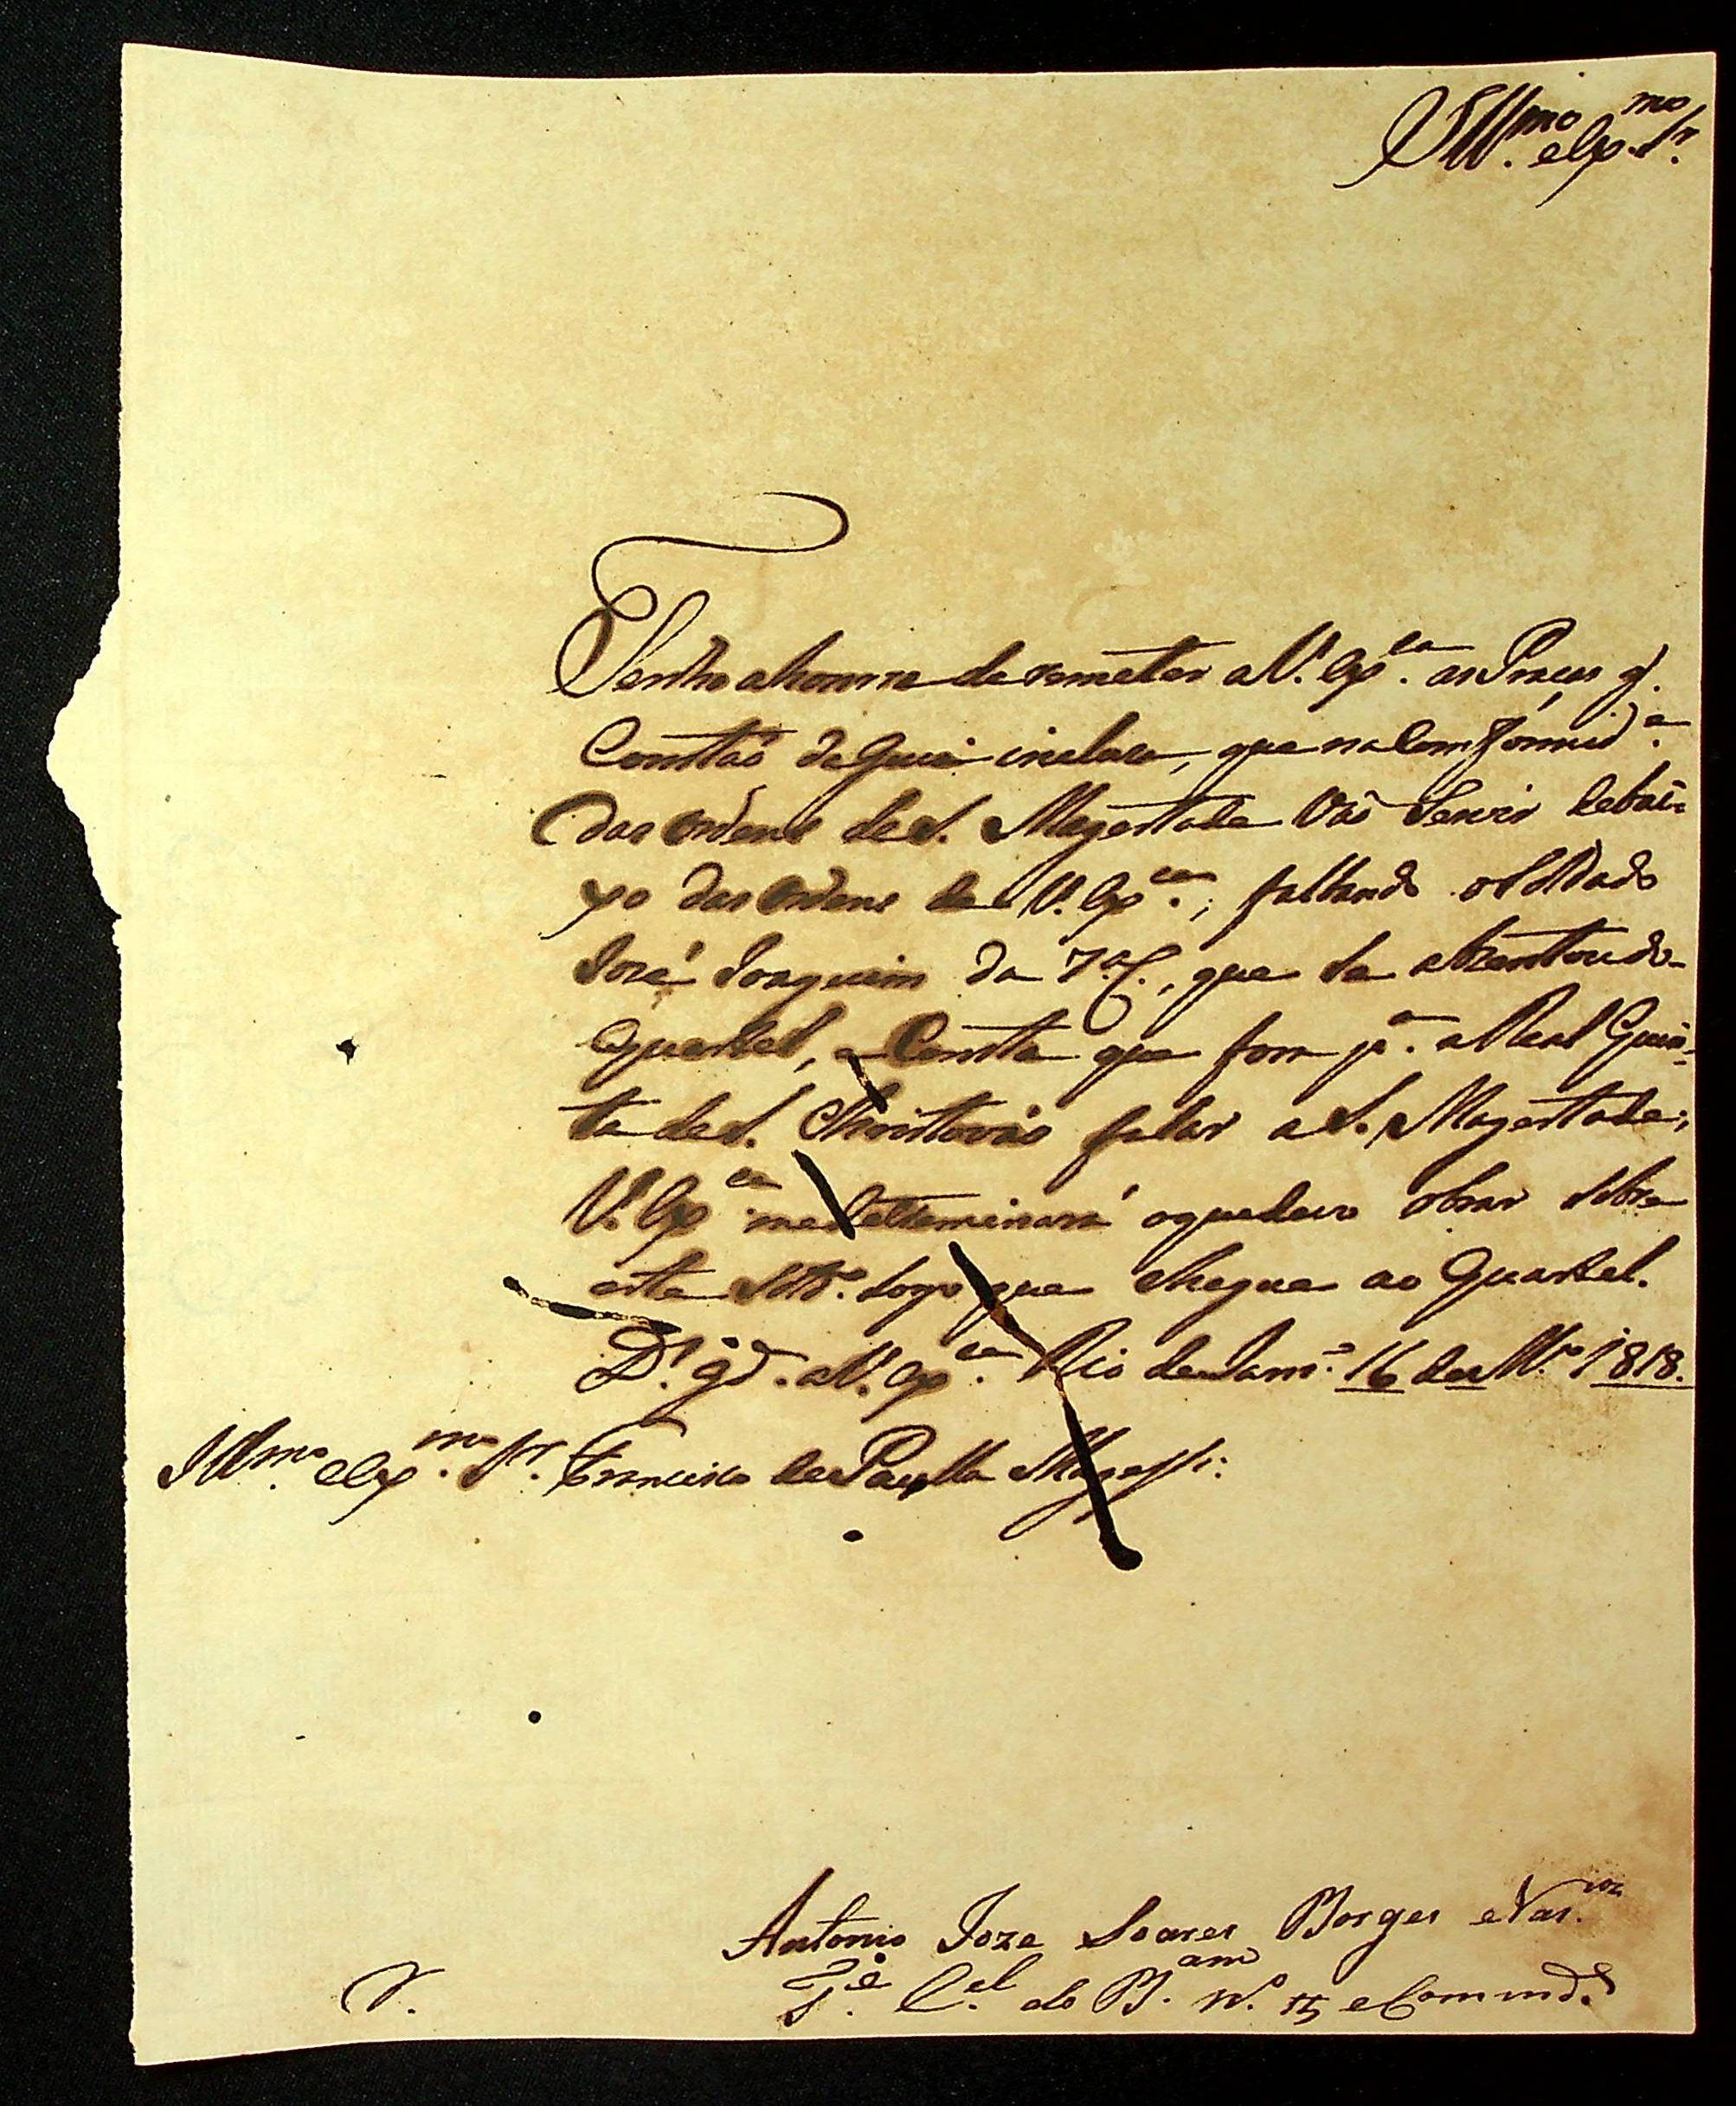 Ill.mo e Ex.mo Sr.
Tenho a honra de remeter a V. Ex.ca as Praças q.
Constaõ da Guia incluza, que na Comformid.e
das ordens de S. Magestade Vaõ Servir debai-
xo das Ordens de V. Ex.ca; faltando o Soldado
José Joaquim da 7.a C., que se abzentou do
Quartel, e Consta que fora p.a a Real Quin-
ta de S. Christovaõ falar a S. Magestade;
V. Ex.ca me determinará o que devo obrar sobre
este Sold.o logo que chegue ao Quartel.
D.s g.de a V. Ex.ca Rio de Jan.o 16 de M.ço 1818.
Ill.mo e Ex.mo Sr. Francisco de Paulla Magessi:
Antonio Joze Soares Borges e Vas.los
T.e C.el do B.am N.o 15 e Command.e
V.